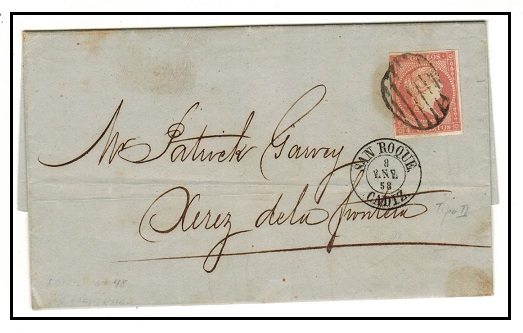 SAN ROQUE
8
ENE
58
CADIZ
Mr Patrick Garvey
Xerez de la frontera
Tipo II